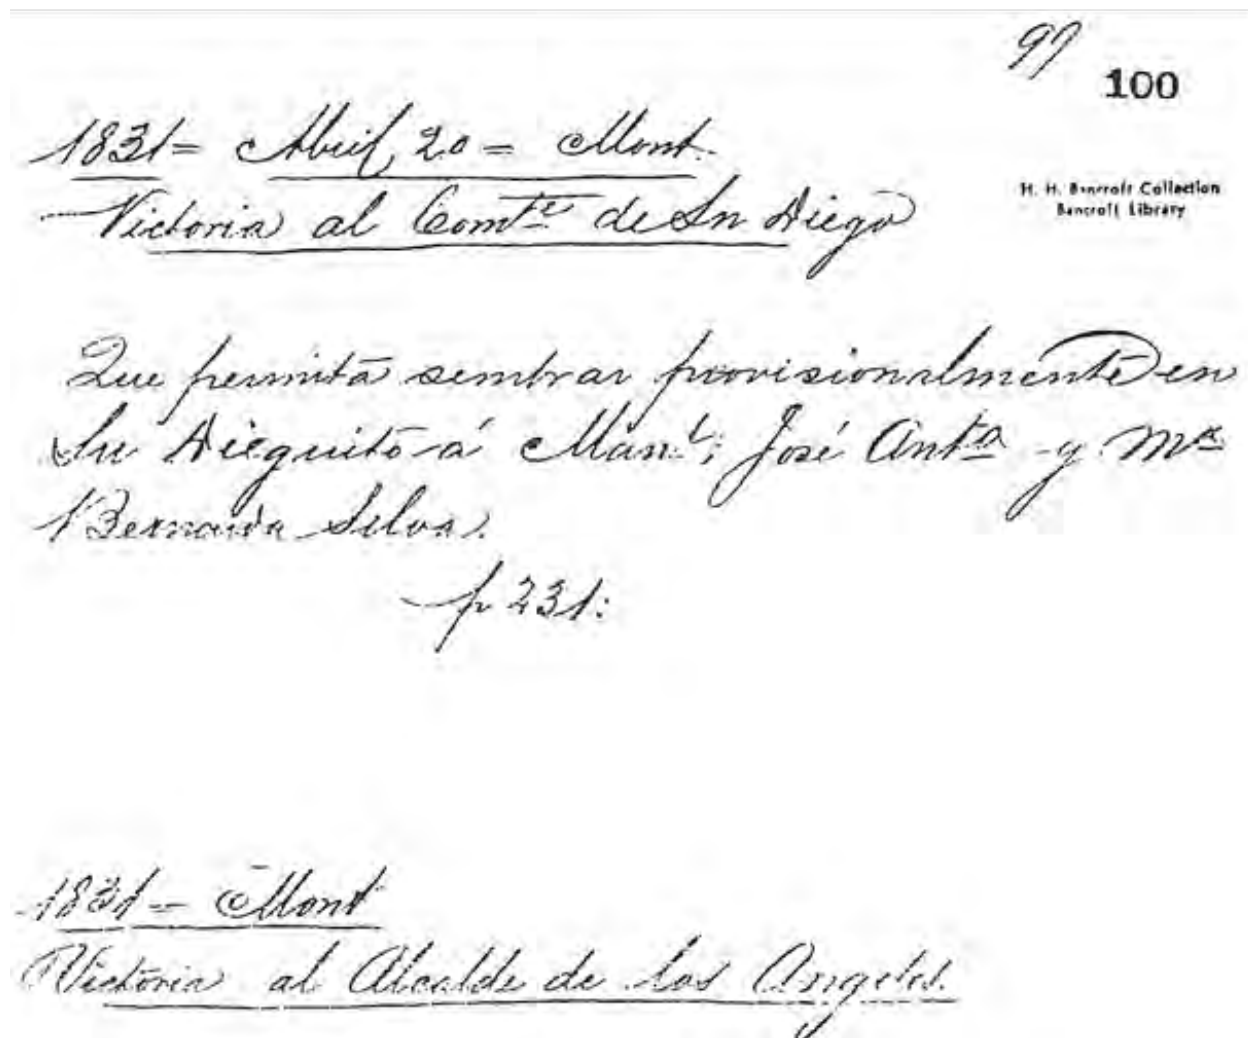 97
100
1831 = Abril, 20 = Mont.
H. H. Bancroft Collection
Bancroft Library
Victoria al Comte de Sn Diego
Que permita sembrar provisionalmente en
Sn Dieguito á Manl; José Anta y Ma
Bernarda Silva.
p 231:
1831 = Mont
Victoria al Alcalde de los Angeles.